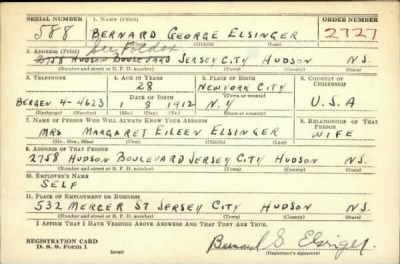 SERIAL NUMBER 1. NAME (Print) ORDER NUMBER
588 BERNARD GEORGE ELSINGER 2727
(First) (Middle) (Last)
See Folder
2. ADDRESS (Print)
2758 HUDSON BOULEVARD JERSEY CITY HUDSON N.J.
(Number and street or R. F. D. number) (Town) (County) (State)
3. TELEPHONE 4. AGE IN YEARS 5. PLACE OF BIRTH 6. COUNTRY OF CITIZENSHIP
28 NEW YORK CITY
(Town or county)
BERGEN 4-4623 DATE OF BIRTH
1 8 1912 N.Y U.S.A
(Exchange) (Number) (Mo.) (Day) (Yr.) (State or country)
7. NAME OF PERSON WHO WILL ALWAYS KNOW YOUR ADDRESS 8. RELATIONSHIP OF THAT PERSON
MRS MARGARET EILEEN ELSINGER WIFE
(Mr., Mrs., Miss) (First) (Middle) (Last)
9. ADDRESS OF THAT PERSON
2758 HUDSON BOULEVARD JERSEY CITY HUDSON N.J.
(Number and street or R. F. D. number) (Town) (County) (State)
10. EMPLOYER'S NAME
SELF
11. PLACE OF EMPLOYMENT OR BUSINESS
532 MERCER ST JERSEY CITY HUDSON N.J.
(Number and street or R. F. D. number) (Town) (County) (State)
I AFFIRM THAT I HAVE VERIFIED ABOVE ANSWERS AND THAT THEY ARE TRUE.
REGISTRATION CARD
D. S. S. Form 1 (over) Bernard G Elsinger
(Registrant's signature)